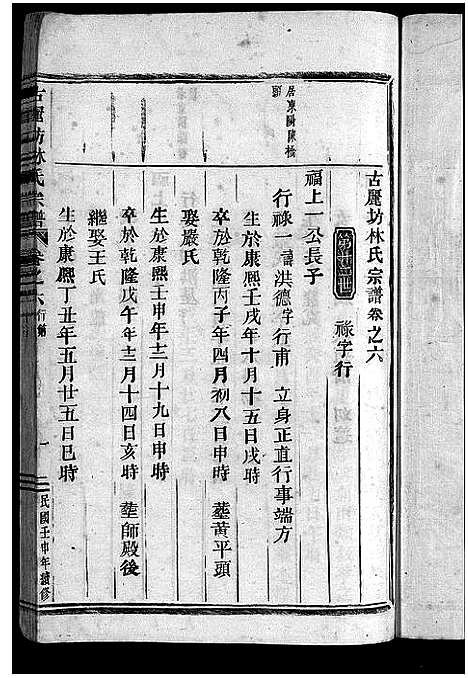 古麗坊林氏宗譜卷之六
祿字行
居東關陳橋
福上一公長子
行祿一諱洪德字行甫 立身正直行事端方
生於康熙壬戌年十月十五日戌時
卒於乾隆丙子年四月初八日申時 塟黃平頭
娶嚴氏
生於康熙壬申年十二月十九日申時
卒於乾隆戊午年十二月十四日亥時 塟師殿後
繼娶王氏
生於康熙丁丑年五月廿五日巳時
古麗坊林氏宗譜 卷之六 行第 一 民國壬申年續修